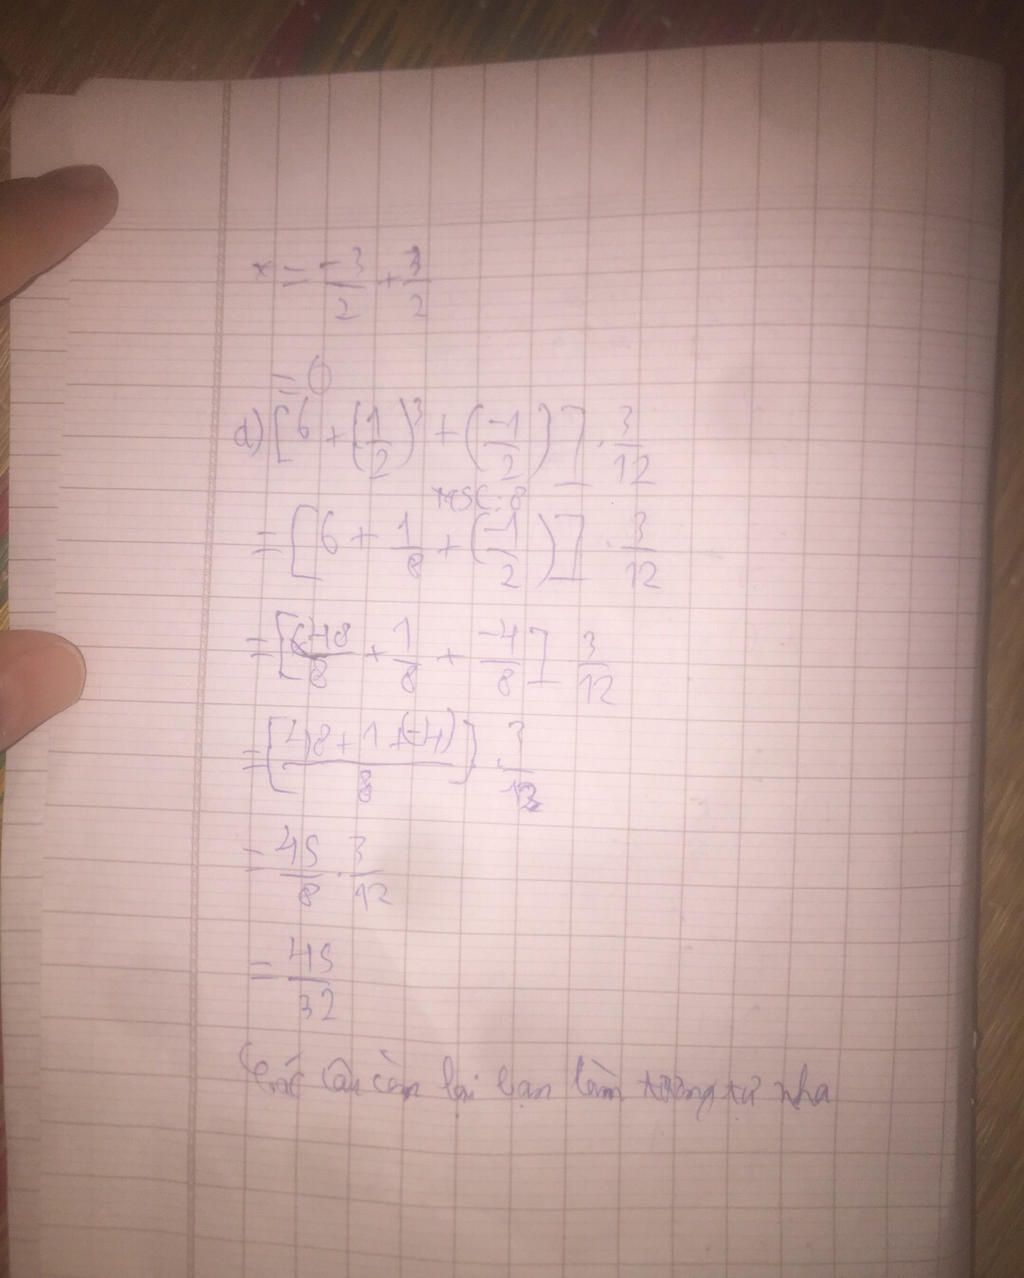 x = -3/2 + 3/2
= 0
d) [6 + (1/2)³ + (-1/2)] . 3/12
MSC: 8
= [6 + 1/8 + (-1/2)] . 3/12
= [48/8 + 1/8 + -4/8] 3/12
= [48 + 1 + (-4)/8] . 3/12
= 45/8 . 3/12
= 45/32
Các câu còn lại bạn làm tương tự nha